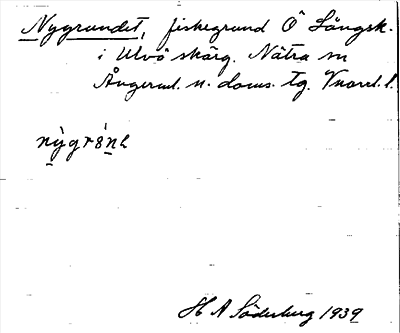 Nygrundet, fiskegrund Ö Långsk.
i Ulvö skärg. Nätra sn
Ångerml. n. doms. tg. Vnorrl. l.
H A Söderberg 1939